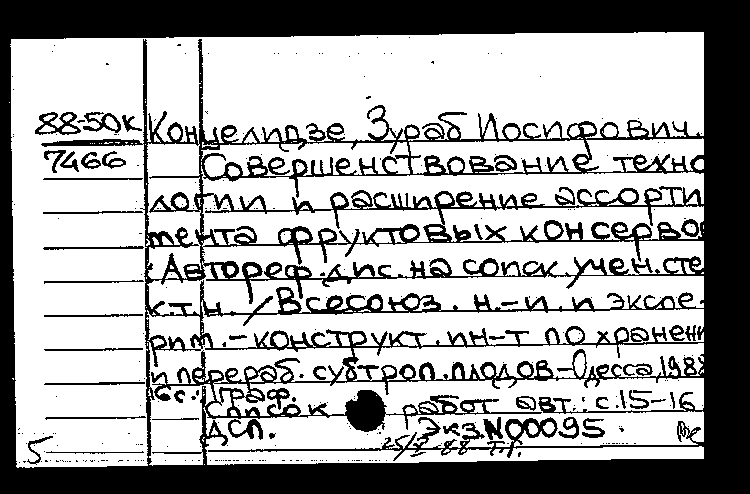 88-50к Концелидзе, Зураб Иосифович.
7466 Совершенствование техно
логии и расширение ассорти
мента фруктовых консерво
: Автореф. дис. на соиск. учен. сте
к.т.н. / Всесоюз. н.-и. и экспе-
рим.-конструкт. ин-т по хранени
и перераб. субтроп. плодов.-Одесса, 1988
16 с.: граф.
Список работ авт.: с.15-16
ДСП. Экз.N00095.
5 25/X-88